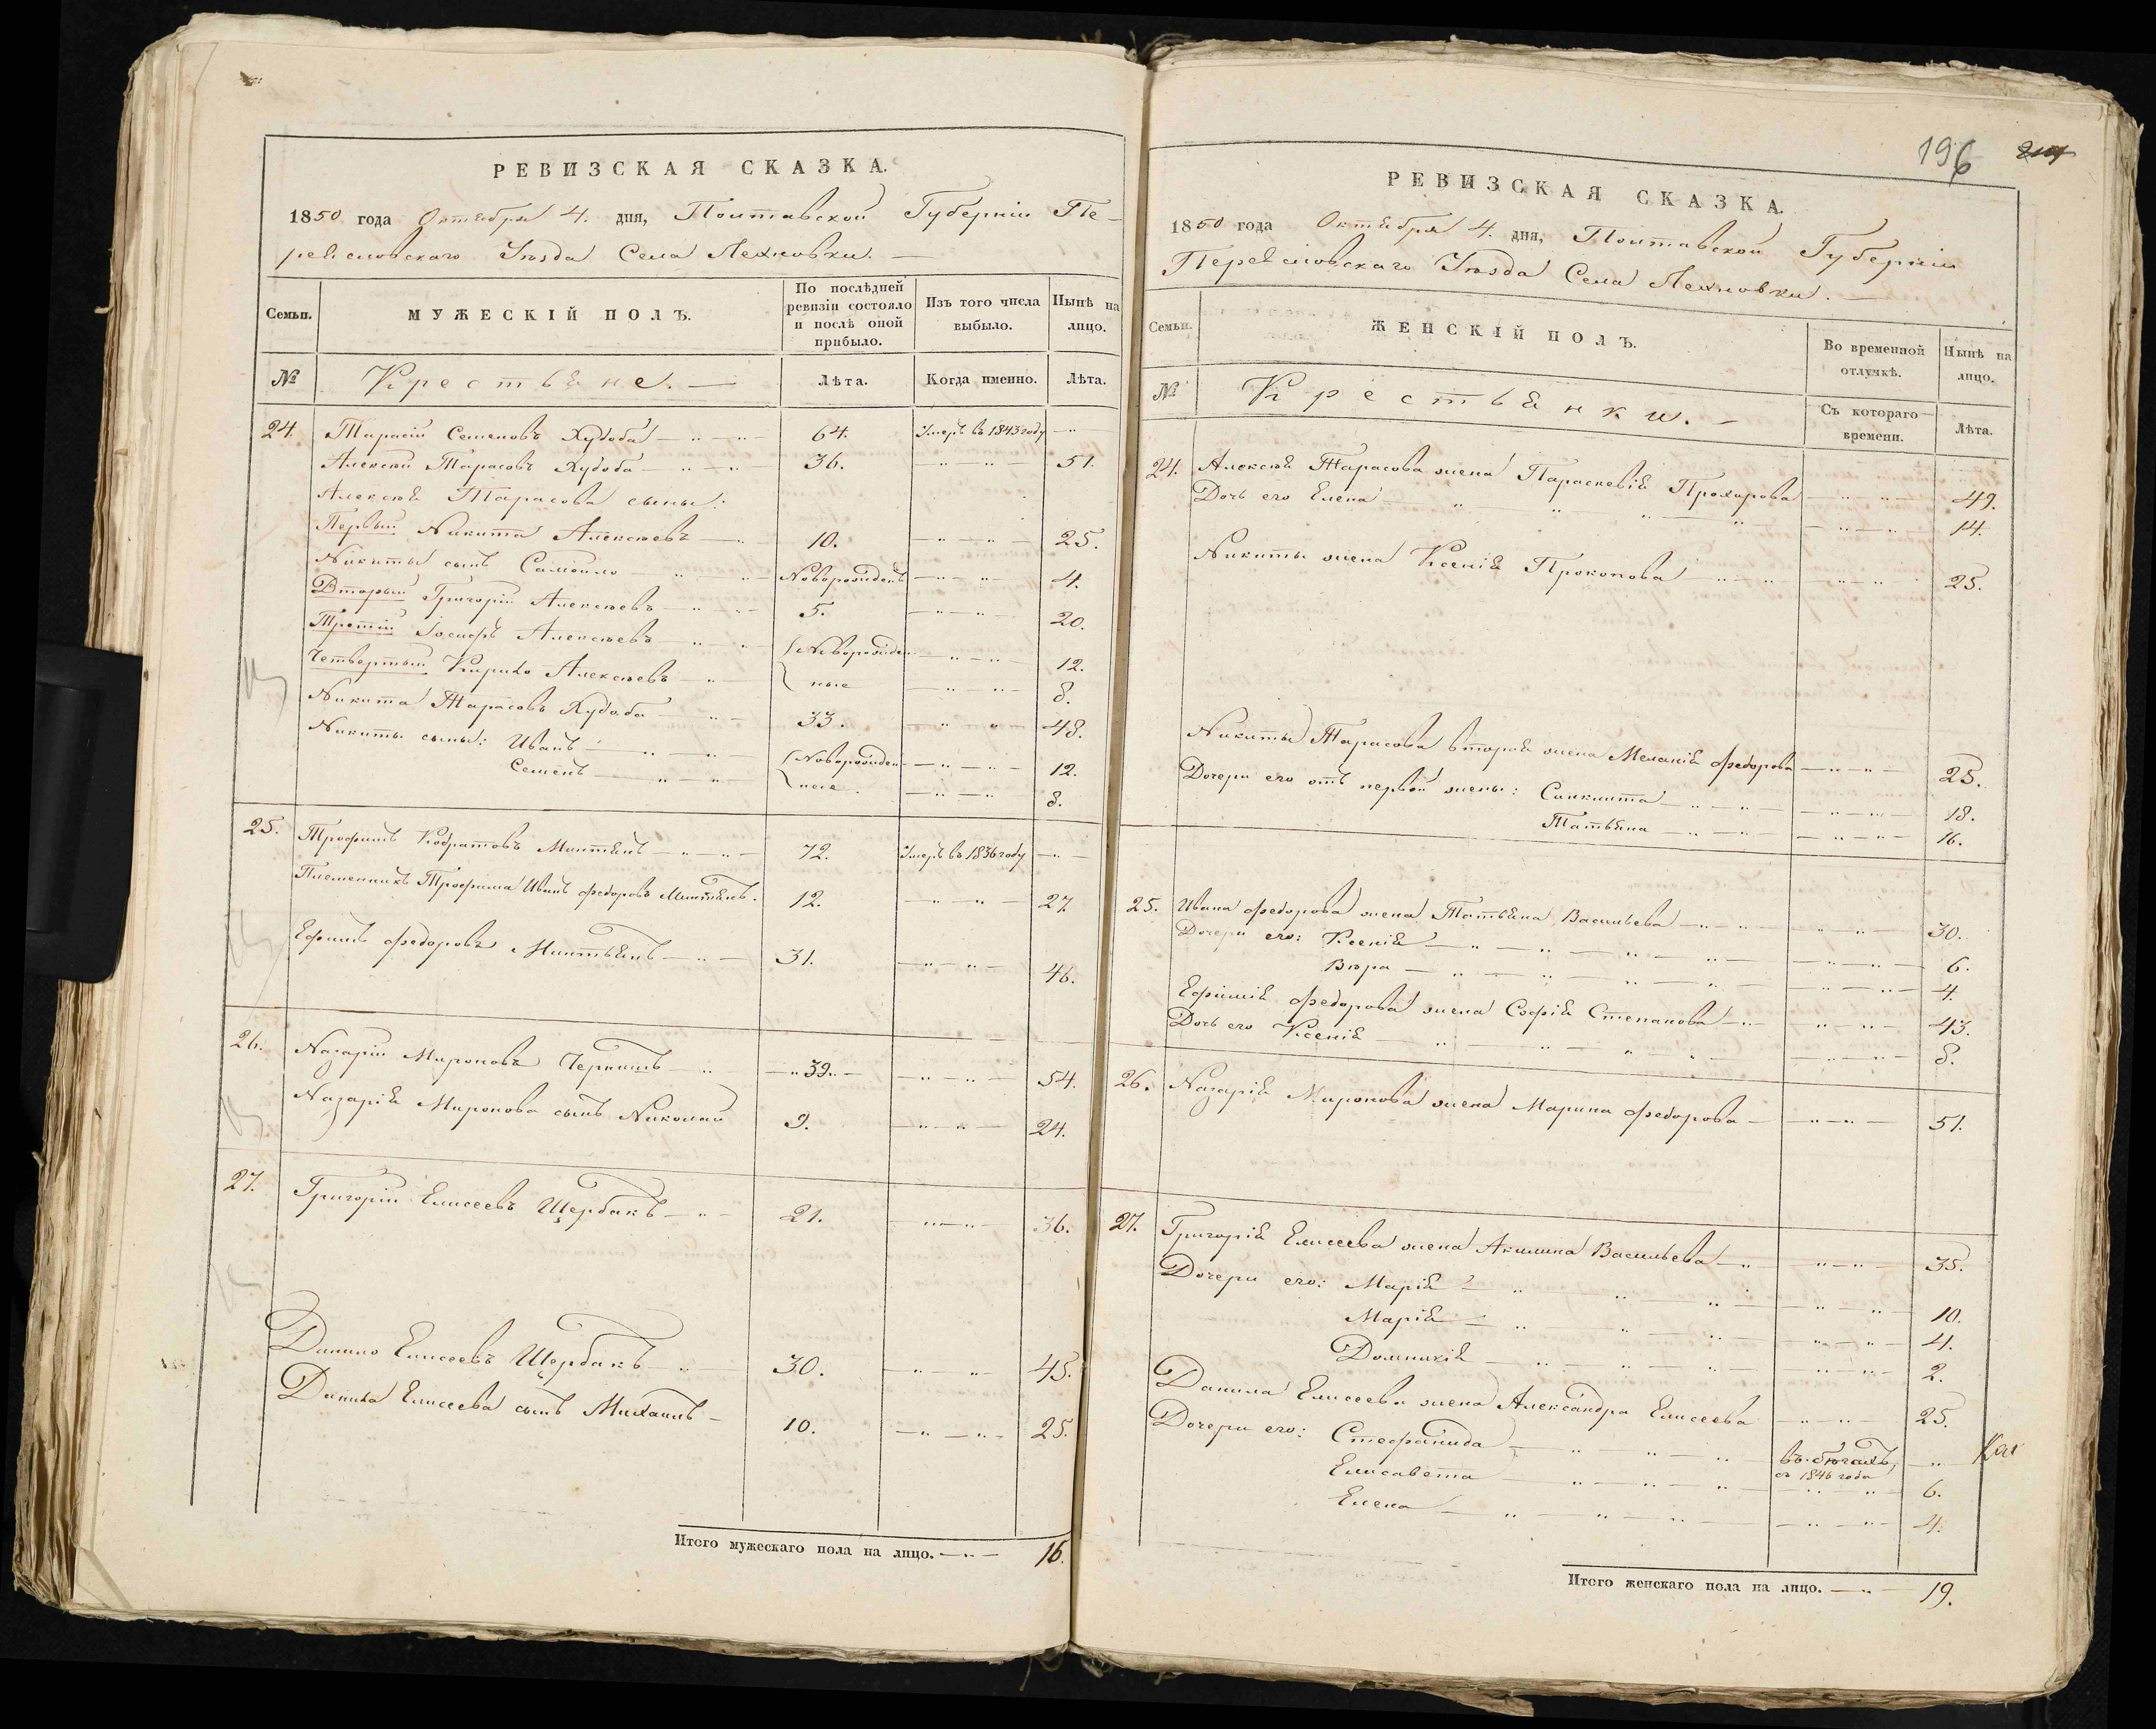 РЕВИЗСКАЯ СКАЗКА.
1850 года Октября 4. дня, Полтавской Губерніи Пе-
реяславскаго Уѣзда Села Лехновки. —
Семьи.
МУЖЕСКІЙ ПОЛЪ.
По послѣдней ревизіи состояло и послѣ оной прибыло.
Изъ того числа выбыло.
Нынѣ на лицо.
№ Крестьяне. — Лѣта. Когда именно. Лѣта.
24. Тарасій Семеновъ Худоба 64. Умеръ въ 1843 году
Алексей Тарасовъ Худоба 36. 51.
Алексѣя Тарасова сыны:
Первый Никита Алексѣевъ 10. 25.
Никиты сынъ Самойло Новорожденъ 4.
Вторый Григорій Алексѣевъ 5. 20.
Третій Іосифъ Алексѣевъ Новорожден- 12.
Четвертый Кирило Алексѣевъ ные 8.
Никита Тарасовъ Худоба 33. 48.
Никиты сыны: Иванъ Новорожден- 12.
Семенъ ные. 8.
25. Трофимъ Кодратовъ 72. Умеръ въ 1836 году
Племенникъ Трофима Иванъ Федоровъ 12. 27
Ефимъ Федоровъ 31. 46.
26. Назарій Мироновъ 39. 54.
Назарія Миронова сынъ Николай 9. 24.
27. Григорій Елисеевъ Щербакъ 21. 36.
Данило Елисеевъ Щербакъ 30. 45.
Данила Елисеева сынъ Михаилъ 10. 25.
Итого мужескаго пола на лицо. 16.
196
РЕВИЗСКАЯ СКАЗКА.
1850 года Октября 4. дня, Полтавской Губерніи
Переяславскаго Уѣзда Села Лехновки. —
Семьи.
ЖЕНСКІЙ ПОЛЪ.
Во временной отлучкѣ.
Нынѣ на лицо.
№ Крестьянки. — Съ котораго времени. Лѣта.
24. Алексѣя Тарасова жена Параскевія Прохорова 49.
Дочь его Елена 14.
Никиты жена Ксенія Прокопова 25.
Никиты Тарасова вторая жена Меланія Федорова 25.
Дочери его отъ первой жены: Синклита 18.
Татьяна 16.
25. Ивана Федорова жена Татьяна Васильева 30.
Дочери его: Ксенія 6.
Вѣра 4.
Ефимія Федорова жена Софія Степанова 43.
Дочь его Ксенія 8.
26. Назарія Миронова жена Марина Федорова 51.
27. Григорія Елисеева жена Акилина Васильева 35.
Дочери его: Марія 10.
Марія 4.
Домникія 2.
Данила Елисеева жена Александра Елисеева 25.
Дочери его: Стефанида въ бѣгахъ,
съ 1846 года
Елисавета 6.
Елена 4.
Итого женскаго пола на лицо. 19.